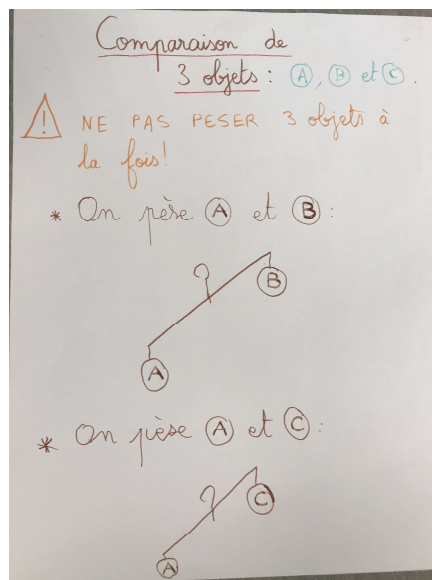 Comparaison de
3 objets : A, B et C.
! NE PAS PESER 3 objets à
la fois!
* On pèse A et B :
B
A
* On pèse A et C :
C
A